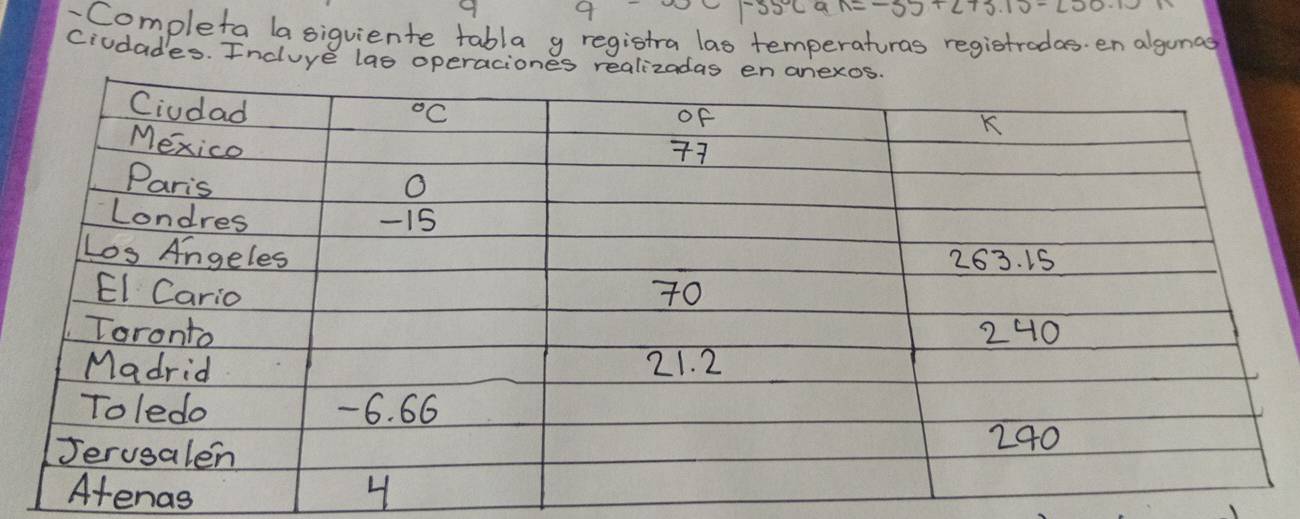 -Completa la siguiente tabla y registra las temperaturas registradas. en algunas
Ciudades. Incluye las operaciones realizadas en anexos.
Ciudad °C °F K
México 77
Paris 0
Londres -15
Los Ángeles 263.15
El Cario 70
Toronto 240
Madrid 21.2
Toledo -6.66
Jerusalén 290
Atenas 4